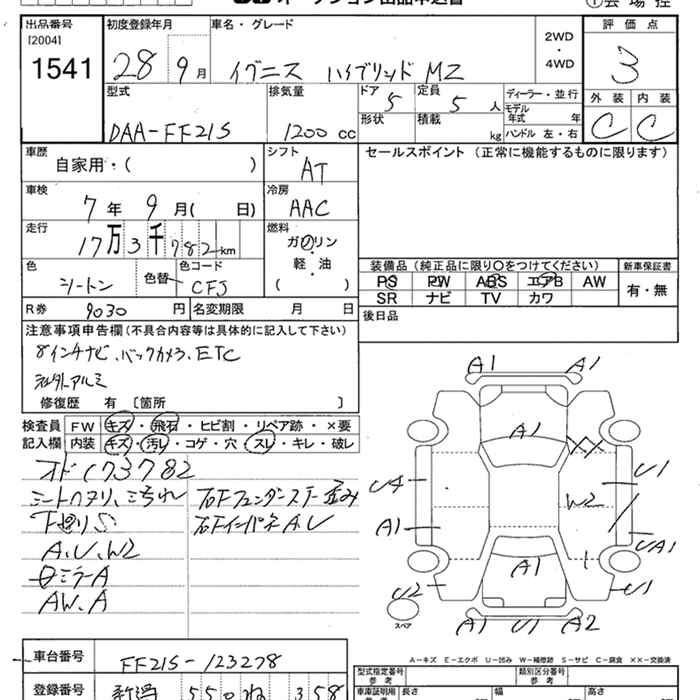 オークション出品申込書
①会場控
出品番号
[2004]
1541
初度登録年月
28 9月
車名・グレード
イグニス ハイブリッド MZ
2WD
・
4WD
評価点
3
型式
DAA-FF21S
排気量
1200 cc
ドア
5
定員
5 人
形状
積載
kg
ディーラー・並行
モデル年式 年
ハンドル 左・右
外装
C
内装
C
車歴
自家用・( )
シフト
AT
セールスポイント (正常に機能するものに限ります)
車検
7年 9月( 日)
冷房
AAC
走行
17万3千782km
燃料
ガソリン
・
軽・油
( )
色
色替
色コード
CFJ
装備品 (純正品に限り〇をつけてください)
PS PW ABS エアB AW
SR ナビ TV カワ
新車保証書
有・無
R券
9030 円
名変期限 月 日
後日品
注意事項申告欄 (不具合内容等は具体的に記入して下さい)
8インチナビ、バックカメラ、ETC
社外アルミ
修復歴 有 〔箇所 〕
検査員記入欄
FW キズ・飛石・ヒビ割・リペア跡・×要
内装 キズ・汚れ・コゲ・穴・スレ・キレ・破レ
オド173782
シートスリ、シ汚れ
下廻りS
A、U、W2
ミラーA
AW、A
右Fフェンダーステー歪み
右FインパネA、U
A1 A1
A1
XX
U4
U1
W2
A1
UA1
A1
U2
U1
A1 U1 A2
スペア
A-キズ E-エクボ U-凹み W-補修跡 S-サビ C-腐食 ××-交換済
車台番号
FF21S-123278
登録番号
新潟 550 ね 358
型式指定番号
参考
類別区分番号
参考
車庫証明用
長さ
幅
高さ